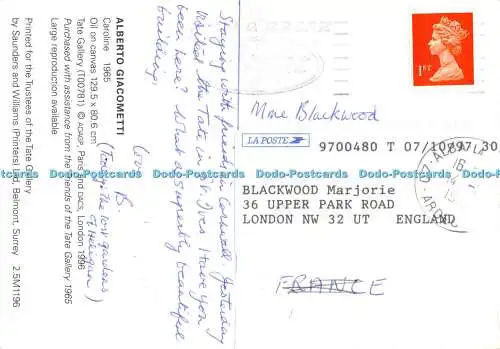 ALBERTO GIACOMETTI
Caroline 1965
Oil on canvas 129.5 x 80.6 cm
Tate Gallery (T00781) © ADAGP, Paris and DACS, London 1996
Purchased with assistance from the Friends of the Tate Gallery 1965
Large reproduction available
Printed for the Trustees of the Tate Gallery
by Saunders and Williams (Printers) Ltd, Belmont, Surrey 2.5M1196
Staying with friends in Cornwall. Yesterday
visited the Tate in St. Ives. Have you
been here? What a superbly beautiful
building.
Love
B.
(Today the lost gardens
of Heligan)
1ST
Mme Blackwood
LA POSTE
9700480 T 07/10 997 30
BLACKWOOD Marjorie
36 UPPER PARK ROAD
LONDON NW 32 UT ENGLAND
FRANCE
16
Dodo-Postcards Dodo-Postcards Dodo-Postcards Dodo-Postcards